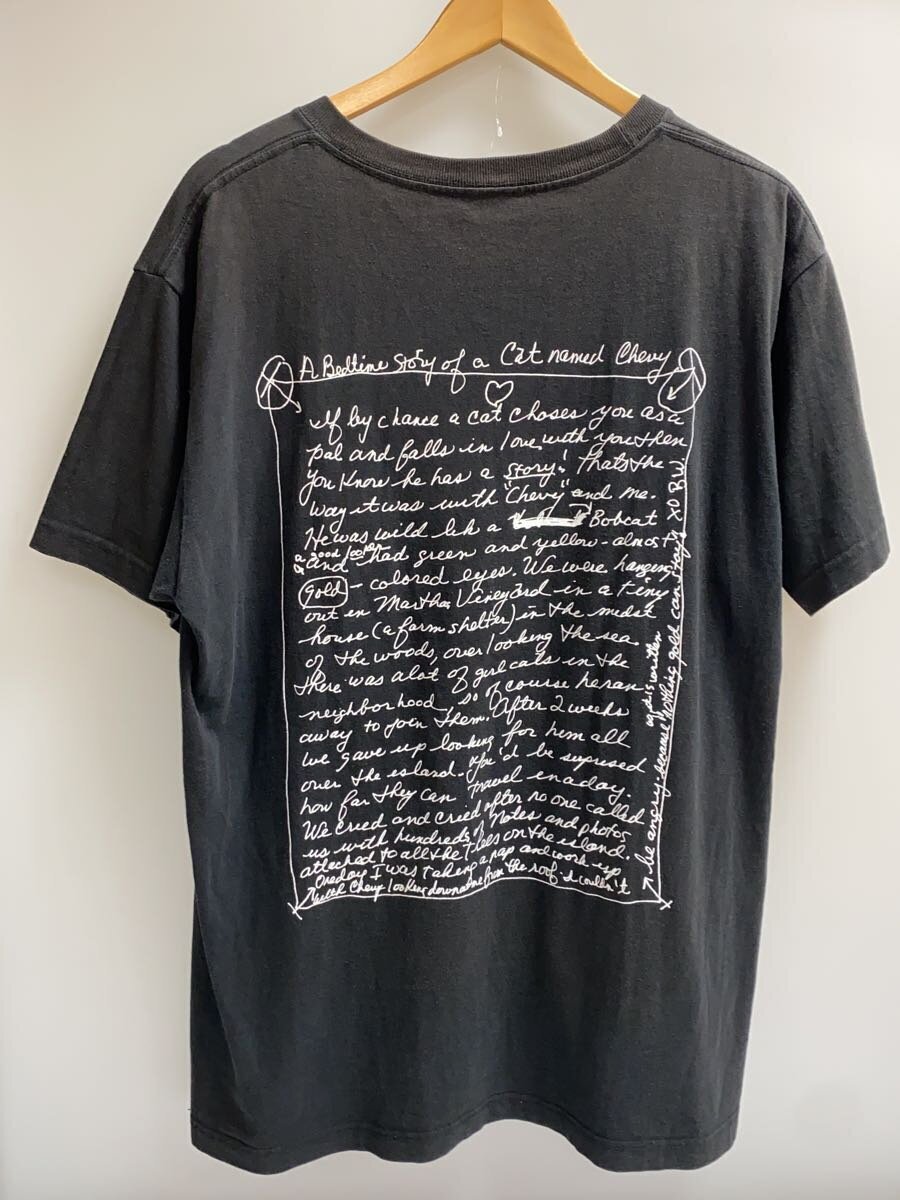 A Bedtime Story of a Cat named Chevy
If by chance a cat choses you as a
pal and falls in love with you then
you know he has a story! thats the
way it was with "Chevy" and me.
He was wild lik a Bobcat
a good looker
and had green and yellow - almost
gold - colored eyes. We were hanging
out in Marthas Vineyard in a tiny
house (a farm shelter) in the midst
of the woods, over looking the sea.
there was alot of girl cats in the
neighborhood, so of course he ran
away to join them. After 2 weeks
we gave up looking for him all
over the island. You'd be suprised
how far they can travel in a day.
We cried and cried after no one called
us with hundreds of notes and photos
attached to all the trees on the island.
One day I was taking a nap and work up
with Chevy looking down at me from the roof. I couldn't
be angry. because nothing gold can stay. XO B.W.
as is written